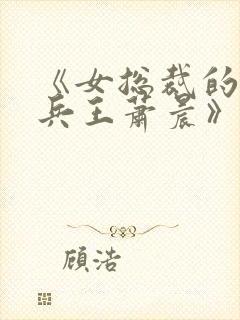 《女总裁的
兵王萧晨》
顾浩